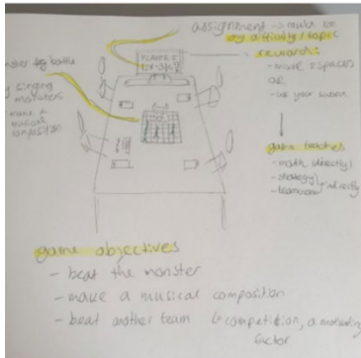 assignment → could be
by difficulty/topic
rewards:
- move spaces
OR
- use your sword
PLAYER 1
game teaches
- math (directly)
- strategy
- teamwork
indirectly
singing
monsters
make a
musical
composition
game objectives
- beat the monster
- make a musical composition
- beat another team ↳ competition, a motivating
factor